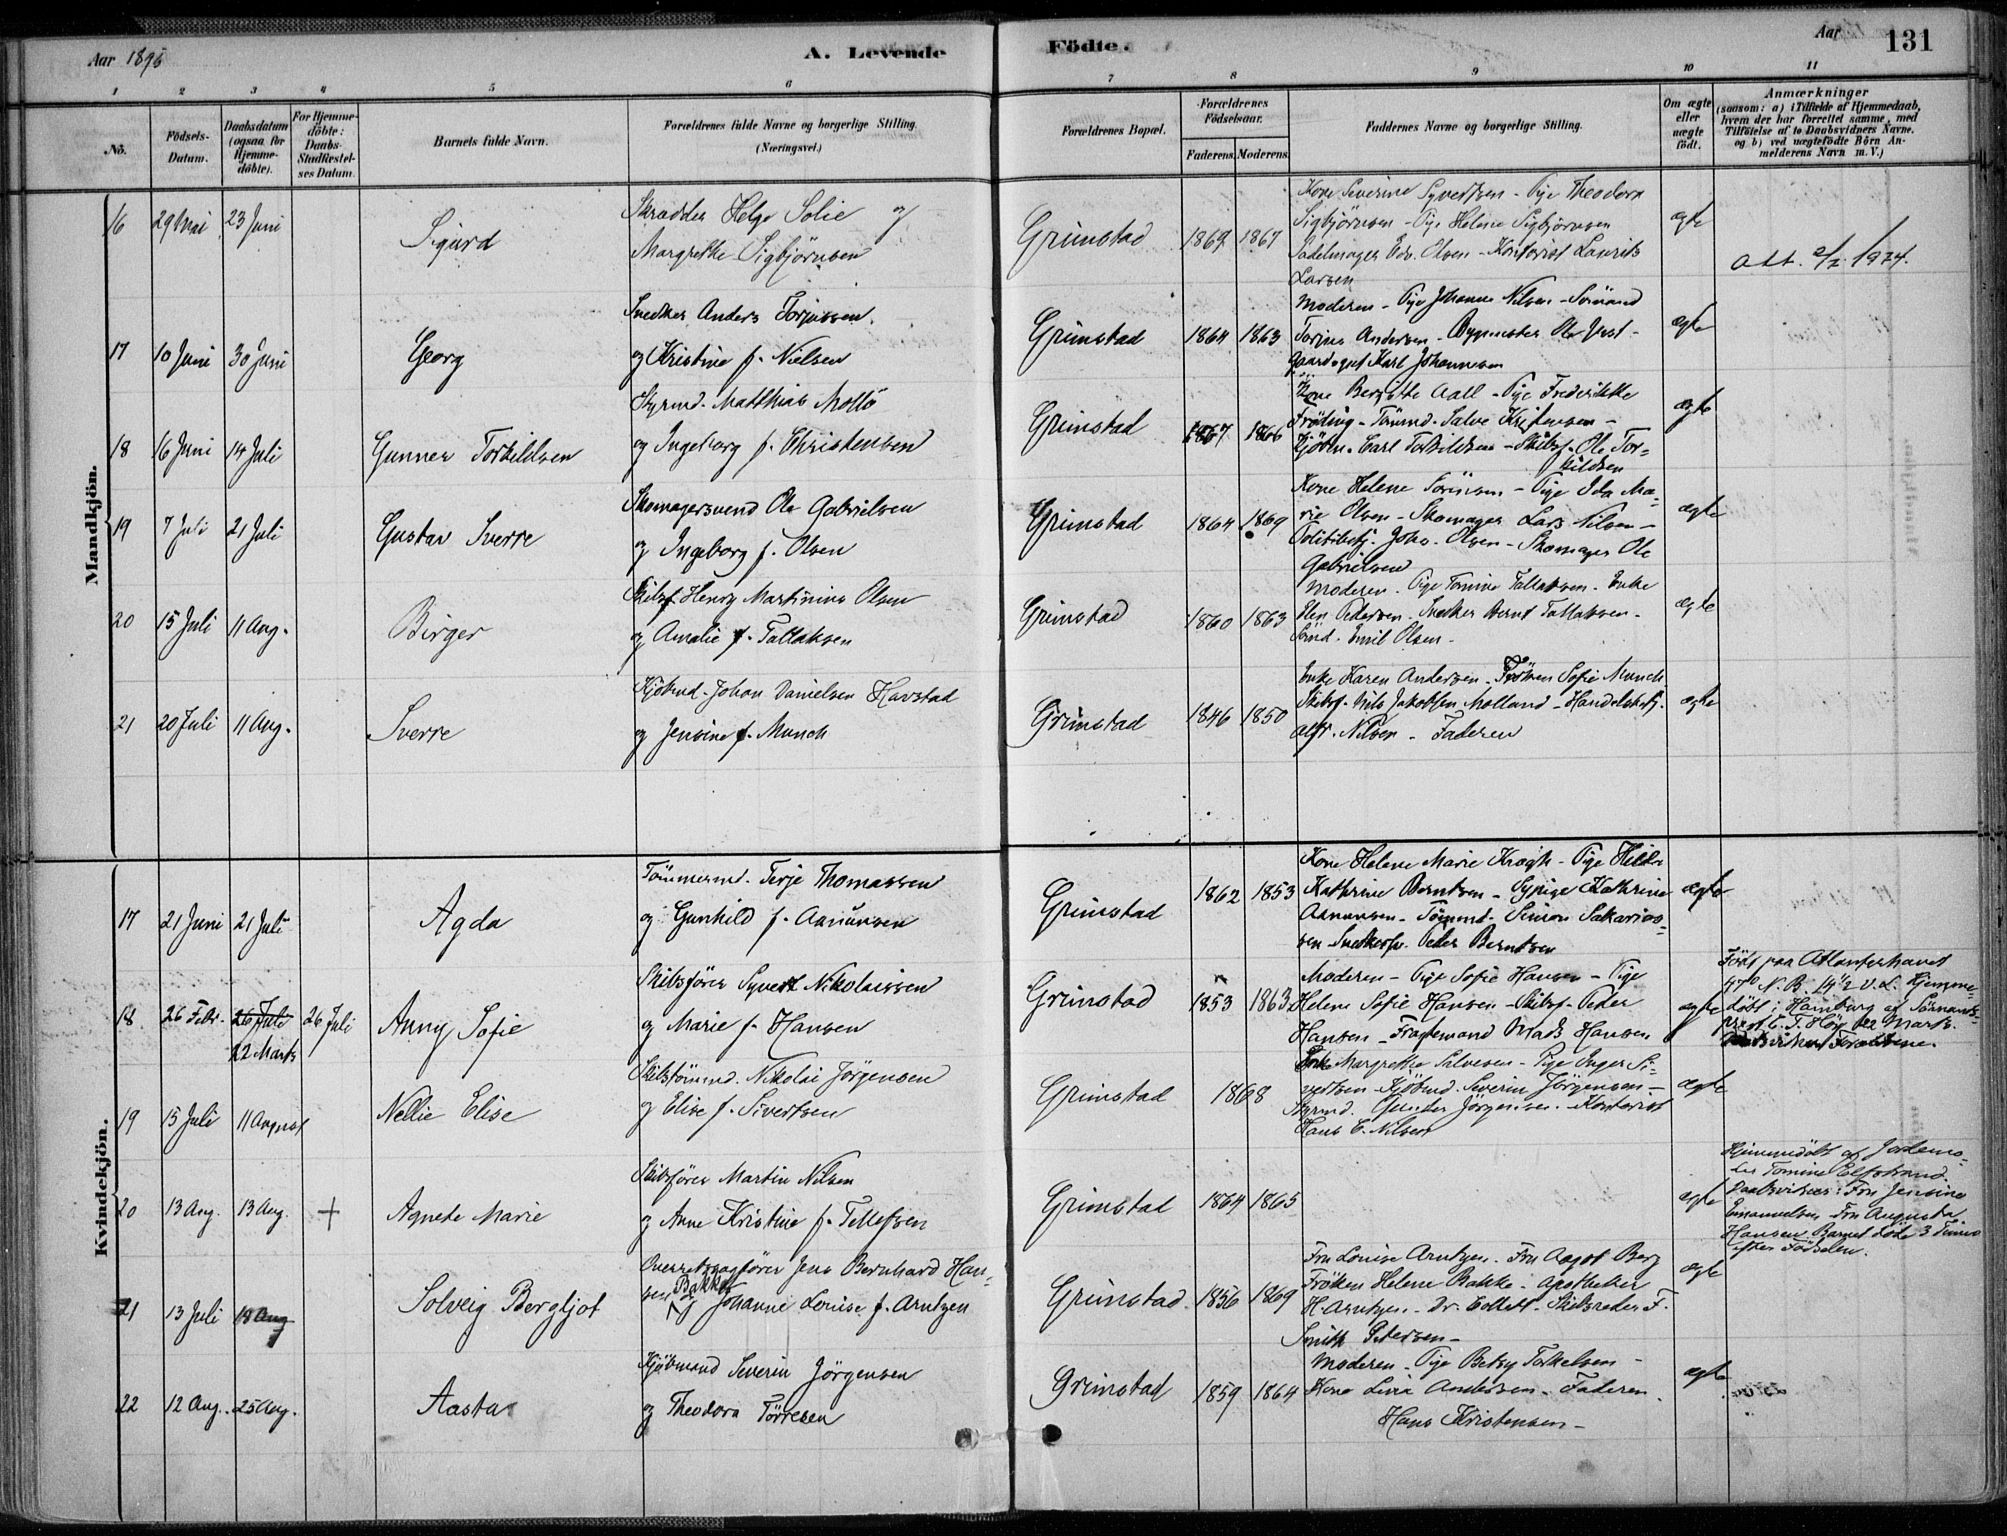 Aar 1895
A. Levende
Födte.
Aar
131
1 2 3 4 5 6 7 8 9 10 11
No.
Födsels-Datum.
Daabsdatum (ogsaa for Hjemme-döbte).
For Hjemme-döbte: Daabs-Stadfæstel-ses Datum.
Barnets fulde Navn.
Forældrenes fulde Navne og borgerlige Stilling.
(Næringsvei.)
Forældrenes Bopæl.
Forældrenes Födselsaar.
Faderens. Moderens.
Faddernes Navne og borgerlige Stilling.
Om ægte eller uægte födt.
Anmærkninger
(saasom: a) i Tilfælde af Hjemmedaab,
hvem der har forrettet samme, med
Tilföielse af to Daabsvidners Navne.
og b) ved uægtefödte Börn An-
melderens Navn m. V.)
Mandkjön.
16 29 Mai 23 Juni Sigurd
Skrædder Helge Solie og
Margrethe Sigbjörnsen
Grimstad 1869 1867
Kone Severine Syvertsen - Pige Theodora
Sigbjörnsen - Pige Helene Sigbjörnsen
Sadelmager Edv. Olsen - Kontorist Laurits
Larsen
ægte
Att. 2/2 1924.
17 10 Juni 30 Juni Georg
Snedker Anders Torjussen
og Kristine f. Nielsen
Grimstad 1864 1863
Moderen - Pige Johanne Nilsen - Sömand
Torjus Andersen - Bygmester Ole Vest-
Karl Johannesen
ægte
18 16 Juni 14 Juli Gunner Torkildsen
Styrmd. Matthias Mollö
og Ingeborg f. Christensen
Grimstad 1867 1866
Kone Berthe Aall - Pige Frederikke
Fröding - Tömmd. Salve Kristensen -
Kjöbm. Carl Torkildsen - Skibsf. Ole Tor-
kildsen
ægte
19 7 Juli 21 Juli Gustav Sverre
Skomagersvend Ole Gabrielsen
og Ingeborg f. Olsen
Grimstad 1864 1869
Kone Helene Sörensen - Pige Ida Ma-
rie Olsen - Skomager Lars Nilsen -
Politibetj. Johs. Olsen - Skomager Ole
Gabrielsen
ægte
20 15 Juli 11 Aug. Birger
Skibsf. Henry Martinius Olsen
og Amalie f. Tallaksen
Grimstad 1860 1863
Moderen. Pige Tomine Tallaksen. Enke
Elen Pedersen. Snedker Bernt Tallaksen.
Sömd. Emil Olsen.
ægte
21 20 Juli 11 Aug. Sverre
Kjöbmd. Johan Danielsen Havstad
og Jensine f. Munch
Grimstad 1846 1850
Enke Karen Andersen - Fröken Sofie Munch
Skibsf. Nils Jakobsen Molland - Handelsbetj.
Alfr. Nilsen - Faderen
ægte
Kvindekjön.
17 21 Juni 21 Juli Agda
Tömmermd. Terje Thomassen
og Gunhild f. Aanunsen
Grimstad 1862 1853
Kone Helene Marie Krogh - Pige Hilda
Kathrine Berntsen - Sypige Kathrine
Aanunsen - Tömmd. Simon Sakarias-
sen - Snedkersv. Peder Berntsen
ægte
18 26 Febr. 26 Juli 22 Marts 26 Juli Anny Sofie
Skibsförer Syvert Nikolaissen
og Marie f. Hansen
Grimstad 1853 1863
Moderen - Pige Sofie Hansen - Pige
Helene Sofie Hansen - Skibsf. Peder
Hansen - Fragtemand Mads Hansen
ægte
Födt paa Atlanterhavet
47° N.B. 14 1/2 V.L. Hjemme-
döbt i Hamburg af Sömands-
prest C. T. Höy 22 Marts.
Daabsvidner Forældrene.
19 15 Juli 11 August Nellie Elise
Skibstömmd. Nikolai Jörgensen
og Elise f. Sivertsen
Grimstad 1868
Enke Margrethe Salvesen - Pige Inger Si-
vertsen - Kjöbmd. Severin Jörgensen -
Styrmd. Gunder Jörgensen. Kontorist
Hans C. Nilsen
ægte
20 13 Aug. 13 Aug. + Agnete Marie
Skibsförer Martin Nilsen
og Anne Kristine f. Tellefsen
Grimstad 1864 1865
ægte
Hjemmedöbt af Jordemo-
der Tomine Elfstrand.
Daabsvidner: Fru Jensine
Emanuelsen Fru Augusta
Hansen. Barnet döde 3 Timer
efter Födselen.
21 13 Juli 18 Aug Solveig Bergljot
Overretssagförer Jens Bernhard Han-
sen Bakke
og Johanne Louise f. Arntzen
Grimstad. 1856 1869
Fru Louise Arntzen. Fru Aagot Berg
Fröken Helene Bakke. Apotheker
H. Arntzen. Dr. Collett. Skibsreder F.
Smith Petersen -
ægte
22 12 Aug. 25 Aug. Aasta
Kjöbmand Severin Jörgensen
og Theodora Törresen
Grimstad 1859 1864
Moderen - Pige Betsy Torkelsen -
Kone Livia Andersen. Faderen.
Hans Kristensen -
ægte